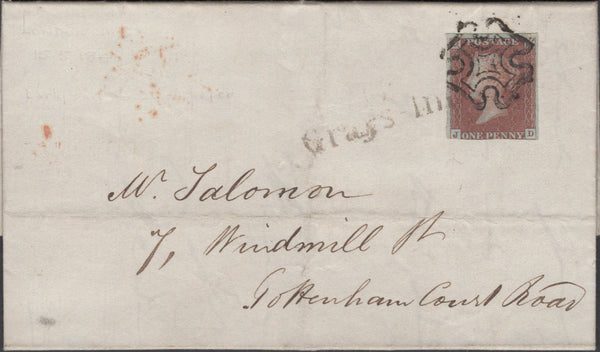 POSTAGE
J D
ONE PENNY
Grays Inn
Mr. Salomon
7, Windmill St
Tottenham Court Road